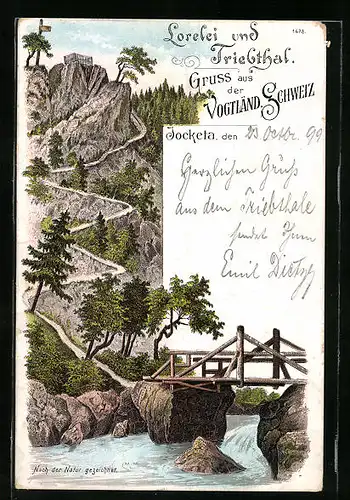 1478.
Lorelei und
Triebthal.
Gruss aus
der
Vogtländ. Schweiz
Jocketa, den 23. Octbr. 99
Herzlichen Gruß
aus dem Triebthale
sendet Ihnen
Emil Dietzsch
Nach der Natur gezeichnet.